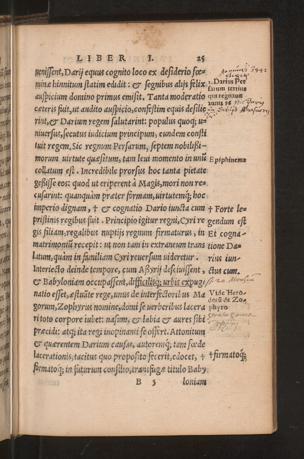 LIBER I. 25
uenissent, Darij equus cognito loco ex desiderio fœ-
minæ hinnitum statim edidit: & segnibus alijs felix
auspicium domino primus emisit. Tanta moderatio
cæteris fuit, ut audito auspicio, confestim equis desilie
rint, & Darium regem salutarint: populus quoq; u-
niuersus, secutus iudicium principum, eundem consti
tuit regem. Sic regnum Persarum, septem nobilissi-
morum uirtute quæsitum, tam leui momento in unũ
collatum est. Incredibile prorsus hoc tanta pietate
gessisse eos: quod ut eriperent à Magis, mori non re-
cusarint: quanquàm præter formam, uirtutemq́; hoc
imperio dignam, † & cognatio Dario iuncta cum
pristinis regibus fuit. Principio igitur regni, Cyri re
gis filiam, regalibus nuptijs regnum firmaturus, in
matrimoniũ recepit: ut non tam in extraneum trans
latum, quàm in familiam Cyri reuersum uideretur.
Interiecto deinde tempore, cum Assyrij desciuissent,
& Babyloniam occupassent, difficilisq; urbis expug
natio esset, æstuãte rege, unus de interfectoribus Ma
gorum, Zophyrus nomine, domi se uerberibus lacera
ri toto corpore iubet: nasum, & labia & aures sibi
præcidi: atq; ita regi inopinanti se offert. Attonitum
& quærentem Darium causas, autoremq́; tam fœdæ
lacerationis, tacitus quo proposito fecerit, edocet, †
firmatoq́; in futurum consilio, transfugæ titulo Baby
B 5 loniam
Darius Per
sarum tertius
Epiphinema
† Forte le-
gendum est
Et cogna-
tione Da-
rius iun-
ctus cum.
Vide Hero-
† firmatoq́;